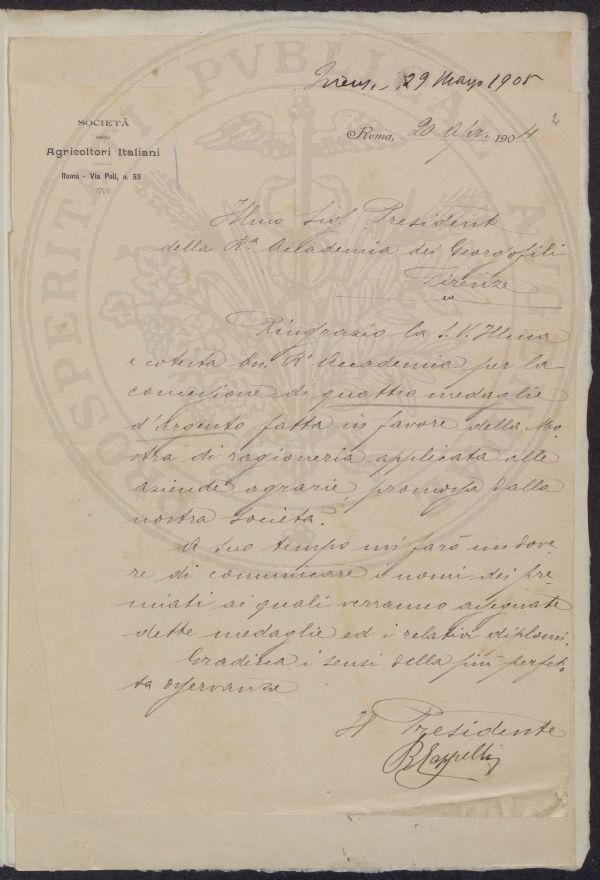 29 Marzo 1905
2
SOCIETÀ
DEGLI
Agricoltori Italiani
Roma - Via Poli, n. 53
Roma, 20 Apr. 1904
Illmo Sig. Presidente
della Ra Accademia dei Georgofili
Firenze
Ringrazio la S. V. Illma
e cotesta On. Ra Accademia per la
concessione di quattro medaglie
d'argento fatta in favore della Mo-
stra di ragioneria applicata alle
aziende agrarie, promossa dalla
nostra Società.
A suo tempo mi farò un dove-
re di comunicare i nomi dei pre-
miati ai quali verranno assegnate
dette medaglie ed i relativi diplomi.
Gradisca i sensi della più perfet-
ta osservanza
Il Presidente
R Cappelli
PROSPERITATI PVBLICAE AVGENDAE